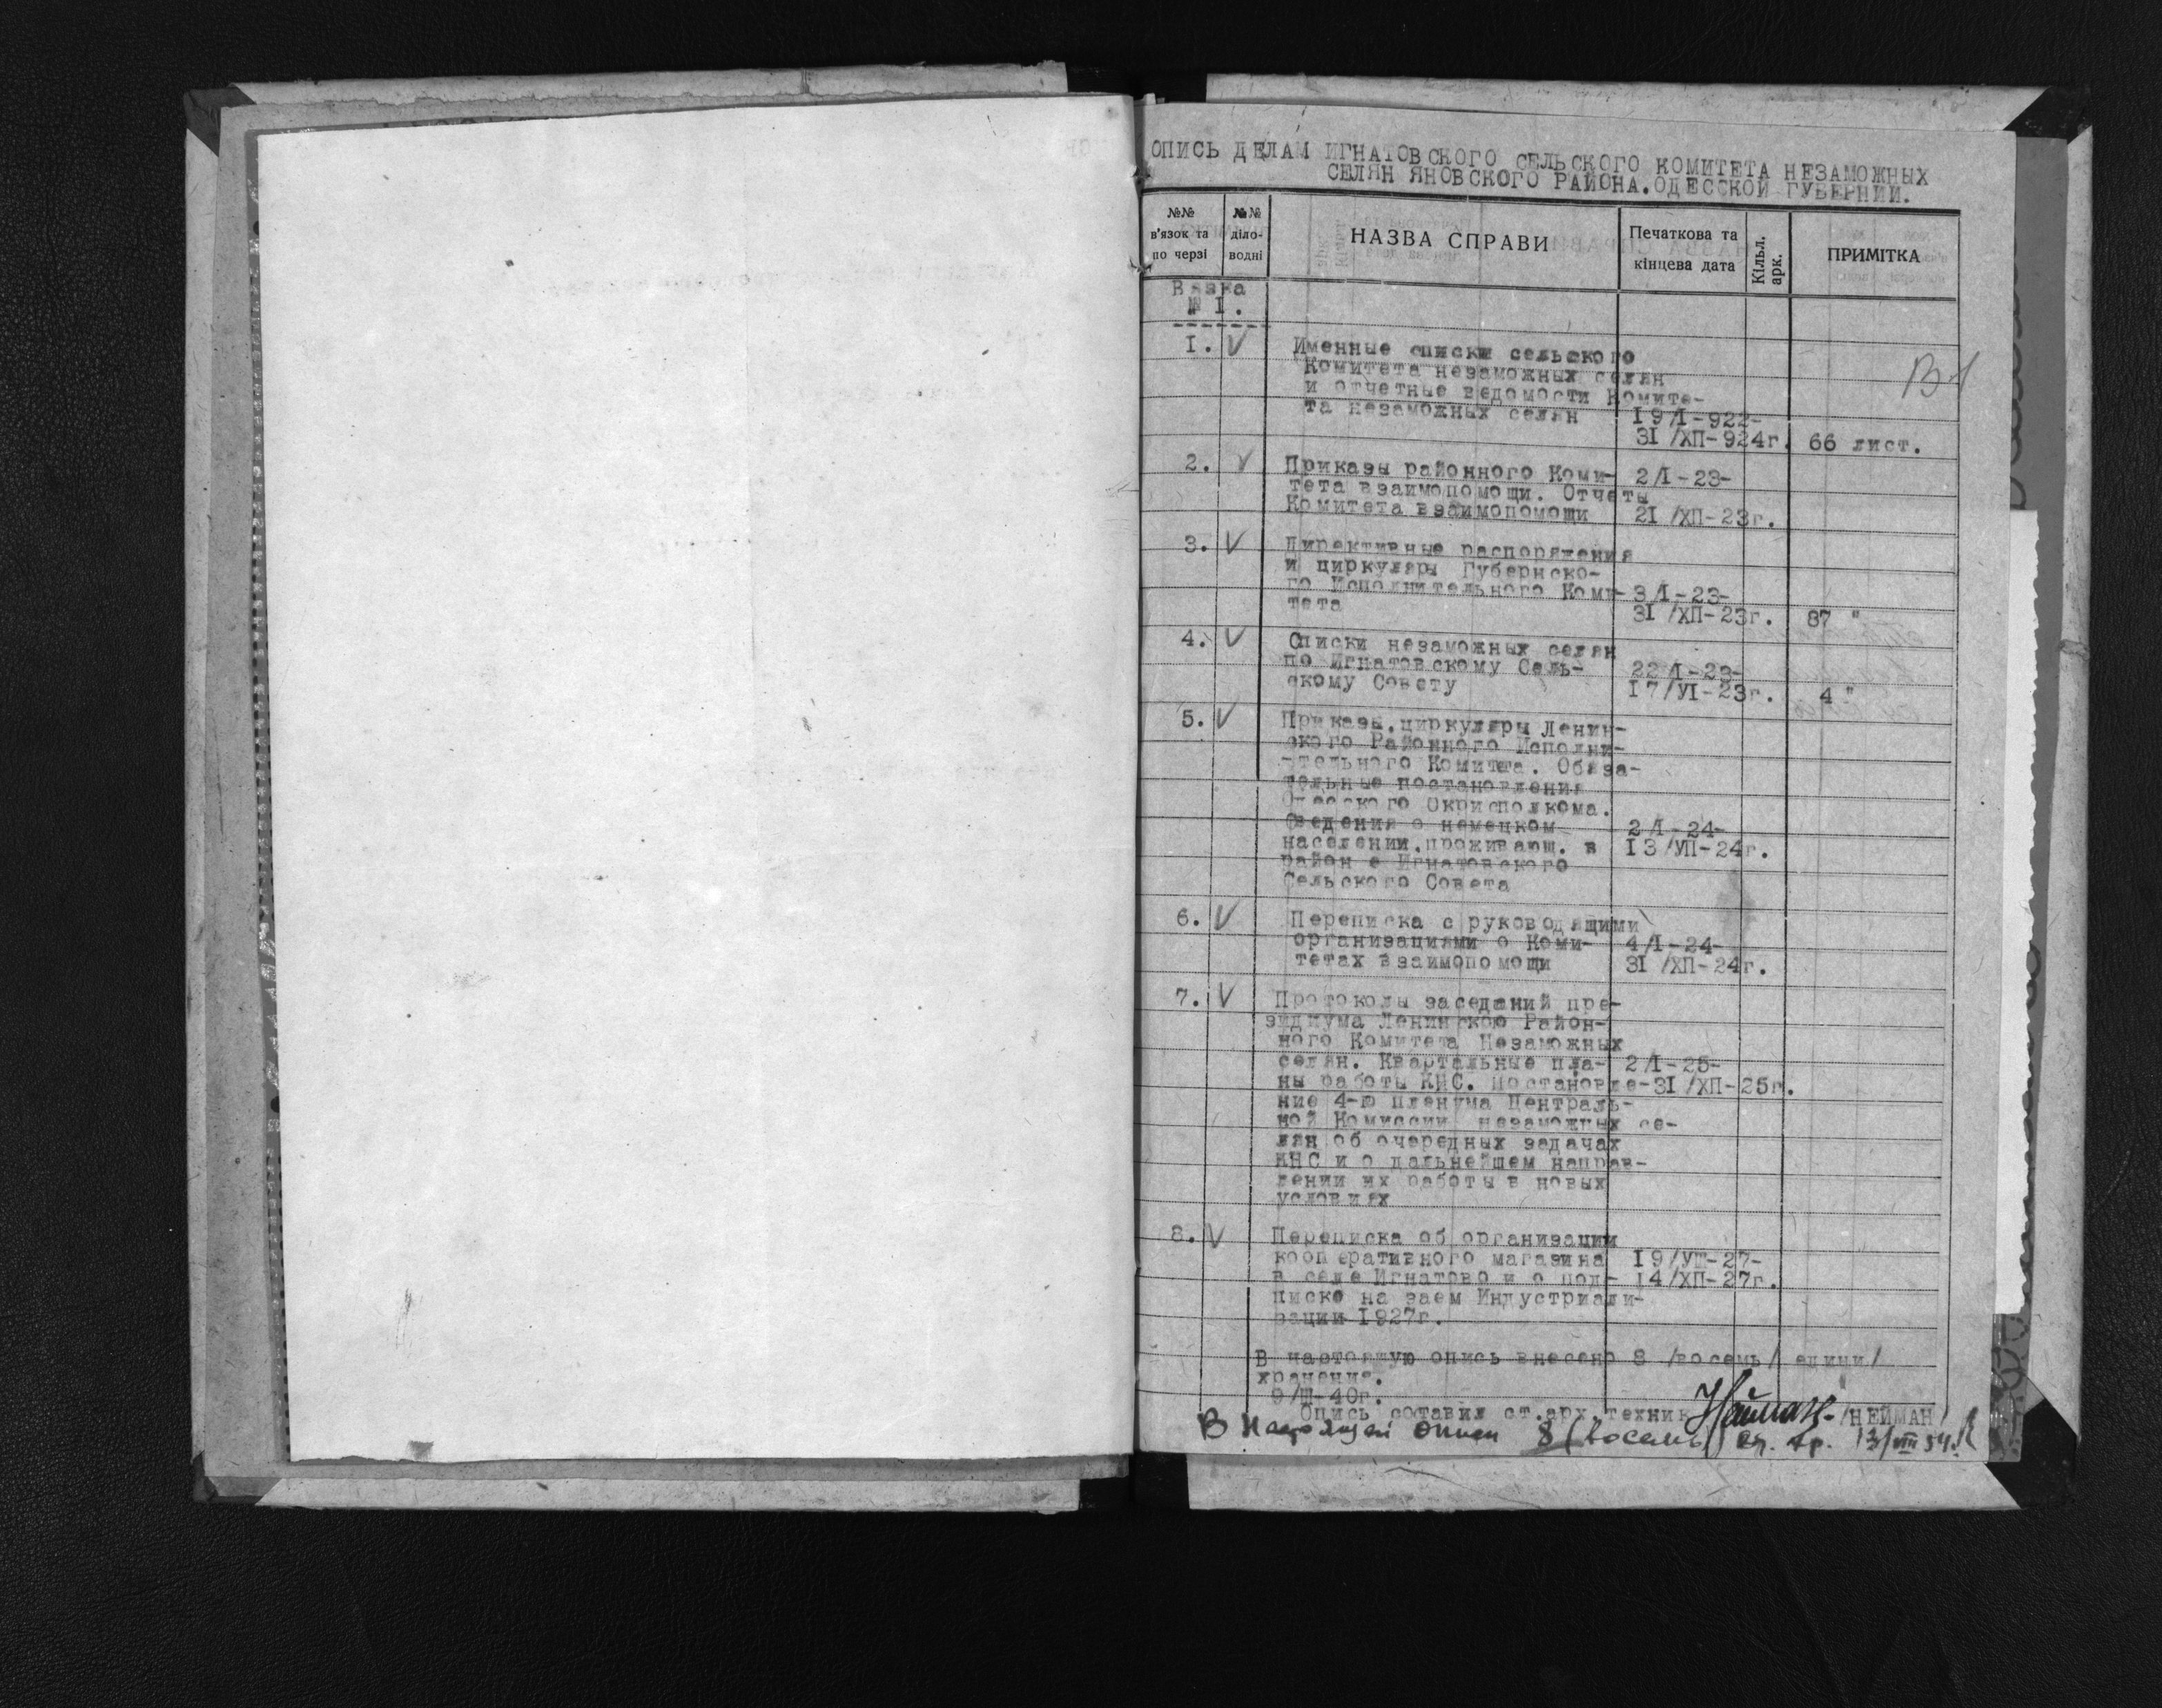 ОПИСЬ ДЕЛАМ ИГНАТОВСКОГО СЕЛЬСКОГО КОМИТЕТА НЕЗАМОЖНЫХ
СЕЛЯН ЯНОВСКОГО РАЙОНА.ОДЕССКОЙ ГУБЕРНИИ.
№№ в'язок та по черзі
№№ діло-водні
НАЗВА СПРАВИ
Печаткова та кінцева дата
Кільк. арк.
ПРИМІТКА
Вязка
№ I.
I. V Именные списки сельского
Комитета незаможных селян
и отчетные ведомости Комите-
та незаможных селян I9/I-922-
3I/ХП-924г. 66 лист.
2. V Приказы районного Коми- 2/I-23-
тета взаимопомощи. Отчеты
Комитета взаимопомощи 2I/ХП-23г.
3. V Директивные распоряжения
и циркуляры Губернско-
го Исполнительного Коми- 3/I-23-
тета 3I/ХП-23г. 87 "
4. V Списки незаможных селян
по Игнатовскому Сель- 22/I-23-
скому Совету I7/УI-23г. 4 "
5. V Приказы,циркуляры Ленин-
ского Районного Исполни-
тельного Комитета. Обяза-
тельные постановления
Одесского Окрисполкома.
Сведения о немецком 2/I-24-
населении,проживающ. в I3/УП-24г.
район е Игнатовского
Сельского Совета
6. V Переписка с руководящими
организациями о Коми- 4/I-24-
тетах взаимопомощи 3I/ХП-24г.
7. V Протоколы заседаний пре-
зидиума Ленинскою Район-
ного Комитета Незаможных
селян. Квартальные пла- 2/I-25-
ны работы КНС. Постановле-3I/ХП-25г.
ние 4-ю пленума Централь-
ной Комиссии незаможных се-
лян об очередных задачах
КНС и о дальнейшем направ-
лении их работы в новых
условиях
8. V Переписка об организации
кооперативного магазина I9/УШ-27-
в селе Игнатово и о под- I4/ХП-27г.
писке на заем Индустриали-
зации I927г.
В настоящую опись внесено 8 /восемь/ едини/
хранения.
9/Ш-40г.
Опись составил ст.арх.техник Нейман /НЕЙМАН/
В настоящей описи 8 (восемь) ед. хр. 13/VIII 54.